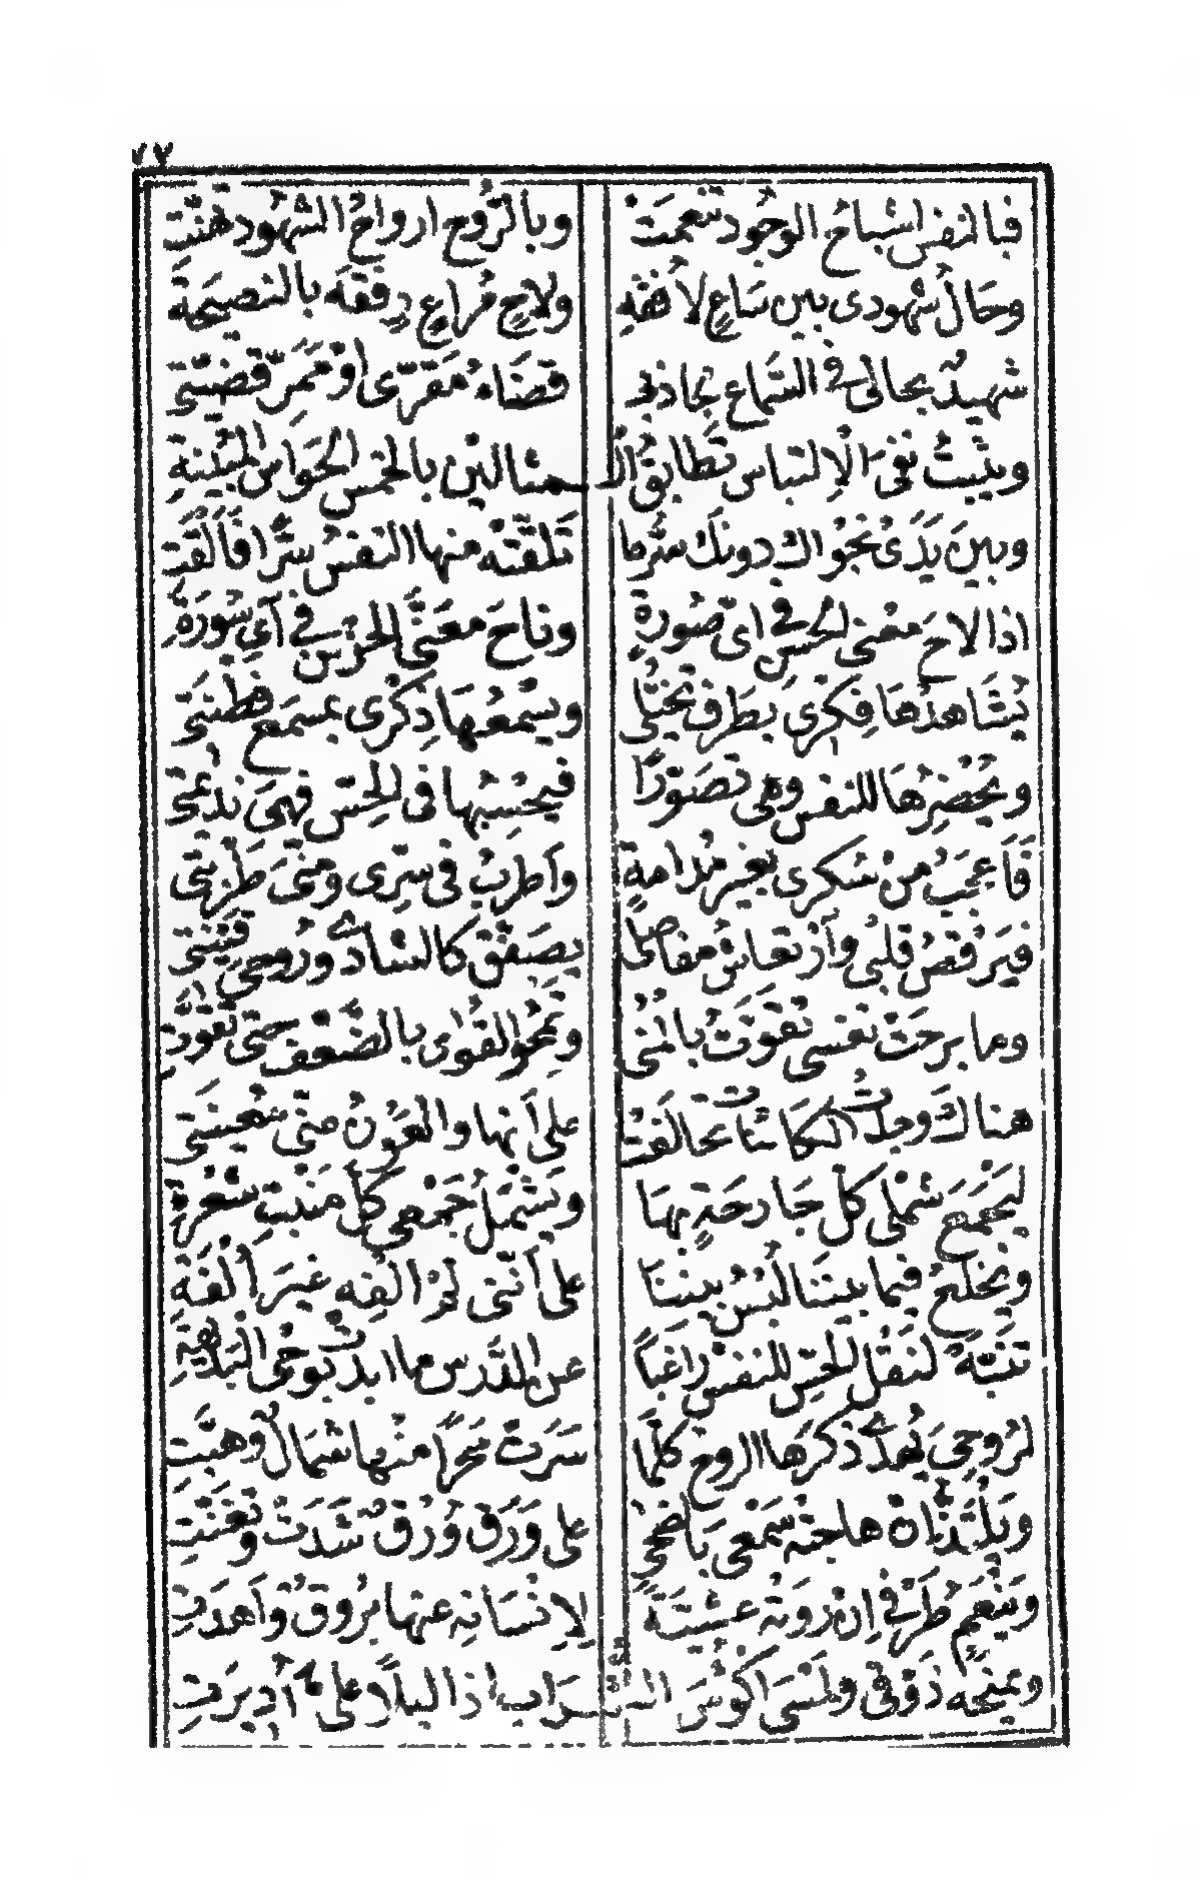 ٧٧
فبالنفس اشباحُ الوجُود تنعمَتْ وبالرُّوح ارواحُ الشهُود هنّتِ
وحَالُ شُهودى بين سَاعٍ لاُفقهِ ولاحٍ مُراعٍ رِفقَه بالنصيحَةِ
شهيدٌ بحالى فى السَّماع لجاذبى قضَاءُ مَقرّى اوْ مَمَرّ قضيّتى
ويثبتُ نفىَ الاِلتباس تطابُقُ الـمثالين بالخمس الحَوَاس المُبينةِ
وبينَ يَدَىْ نَجْوَاك دونكَ سرَّ ما تَلقّتهُ منها النفسُ سرًّا فَاَلقَت
اذا لاحَ معْنى الحُسن فى اىّ صُورةٍ وناحَ معَنَّى الحُزن فى آىِ سُورَةِ
يُشَاهدُهَا فِكرى بطَرفِ تخيُّلى ويسْمعُهَا ذِكْرى بمسمَع فطنتى
ويُحْضِرُهَا للنفس وهمى تصَوّرًا فيحْسِبُها فى الحِسّ فهمىَ نديمتى
فَاَعجَبُ منْ سُكرى بغير مُدامةٍ واَطرَبُ فى سِرّى ومنّىَ طَرْبتى
فيَرْقصُ قلبى وارْتعاشُ مفاصلى يصَفّقُ كالشادى ورُوحىَ قينتى
وما برحَتْ نفسى تقوّتُ بالمُنى وتمْحُو القُوٰى بالضُّعْف حتى تقوَّت
هناكَ وجدتُ الكَائنات تحالَفتْ على اَنها والعَوْنُ منّى مُعينتى
ليَجْمَعَ شمْلى كلُّ جَارحَةٍ بهَا ويَشْمَلَ جَمْعى كلُّ مَنْبتِ شعْرةِ
ويخلعُ فيما بيننَا لُبْسُ بيننَا على اَنّنى لَمْ اُلفِه غيرَ اُلفَةِ
تنبّهْ لنَقْل الحِسّ للنفس راغبًا عن الدَّرس ما ابدت بوَحْى البَديهَةِ
لرُوحِىَ يُهدى ذكرُهَا الروحَ كلَّما سَرَتْ سَحَرًا منْها شمَالٌ وهبَّتِ
ويلْتَذُّ اِنْ هاجتهُ سَمْعى بالضُحى على وَرَقٍ وُرْقٌ شدَتْ وتغنّتِ
ويَنْعَمُ طَرْفى اِنْ رَوَتهُ عشيّةً لاِنسَانِهِ عنها بُرُوقٌ واَهدَتِ
ويمنحُه ذَوْقى ولمْسىَ اَكؤُسَ الشَّرَابِ اذا ليلاً علىّ اُديرَتِ